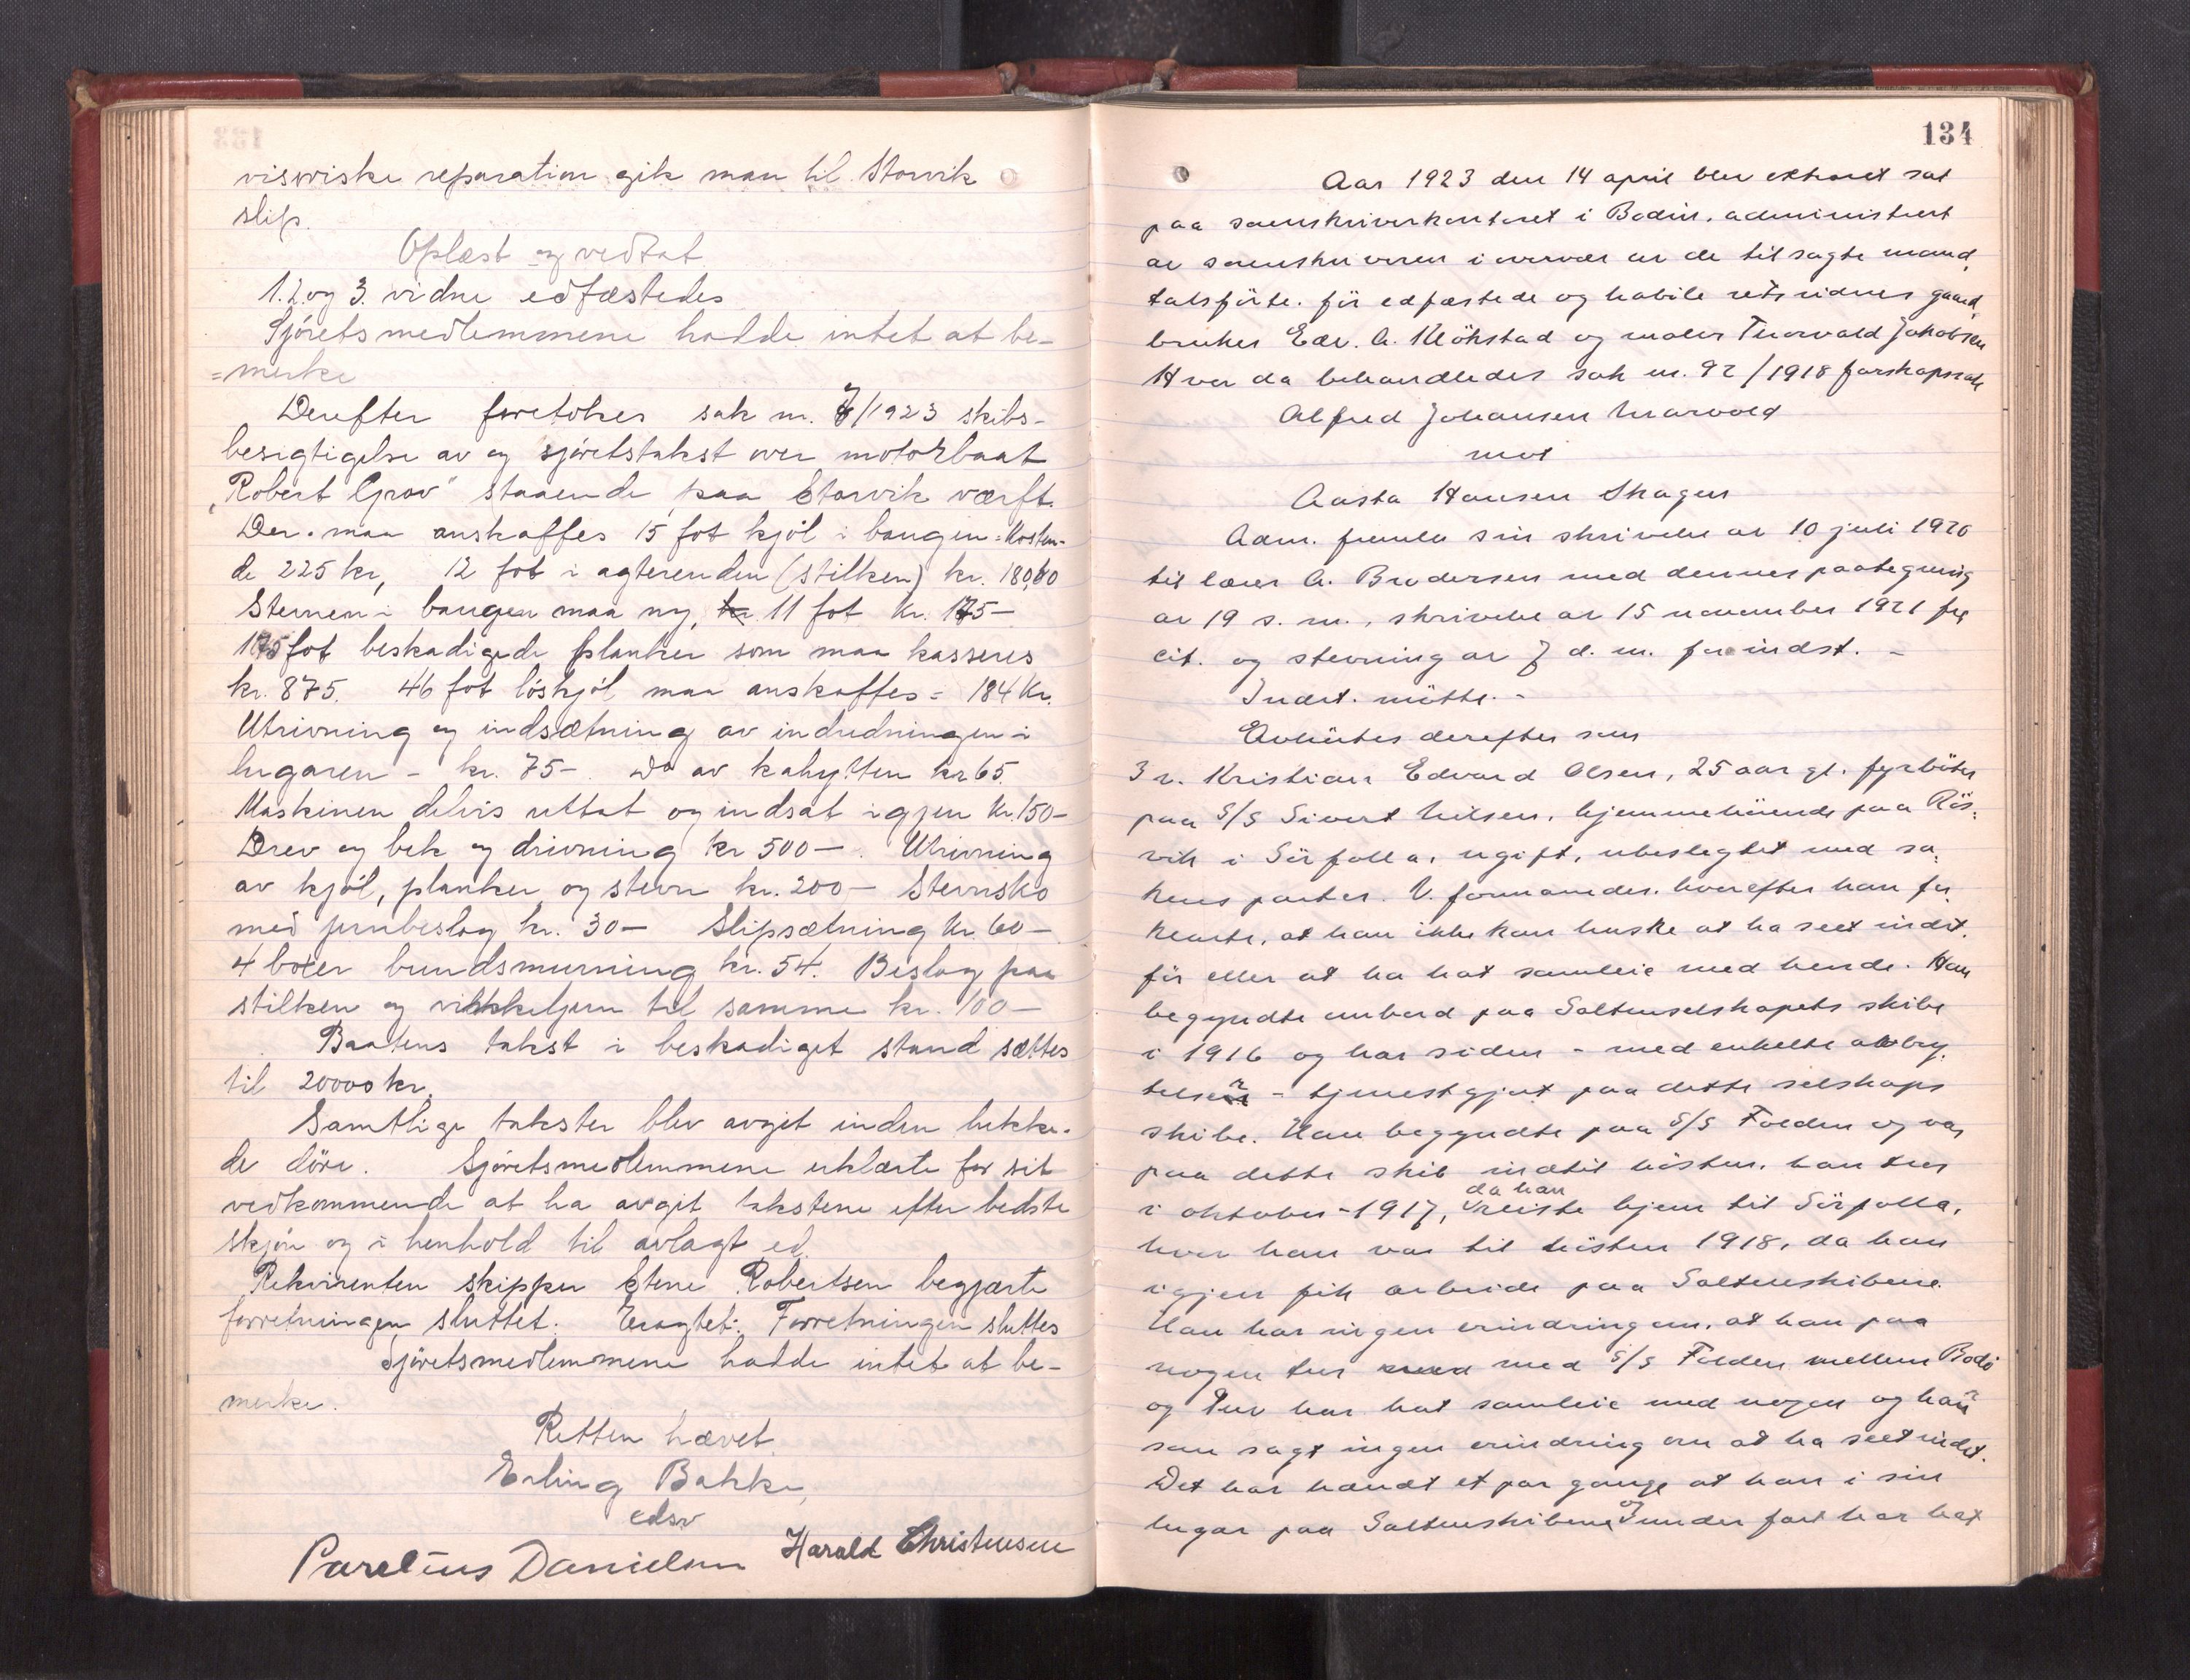 visoriske reparation gik man til Storvik
slip.
Oplæst og vedtat
1. 2. og 3. vidne edfæstedes
Sjøretsmedlemmene hadde intet at be-
=merke
Derefter foretokes sak nr. 7/1923 skibs-
besigtigelse av og sjøretstakst over motorbaat
"Robert Grov" staaende paa Storvik værft.
Der maa anskaffes 15 fot kjøl i baugen = Kosten-
de 225 kr, 12 fot i agterenden (stilken) kr. 180,00
Stevnen i baugen maa ny, 11 fot kr. 175-
175 fot beskadigede planker som maa kasseres
kr. 875. 46 fot løskjøl maa anskaffes = 184 kr.
Utrivning og indsætning av indredningen i
lugaren - kr. 75-. Do av kahytten kr 65.
Maskinen delvis uttat og indsat igjen kr. 150-
Drev og bek og drivning kr 500-. Utrivning
av kjøl, planker og stevn kr. 200- Stevnsko
med jernbeslag kr. 30- Slipsætning kr. 60-
4 boxer bundsmurning kr. 54. Beslag paa
stilken og vinkeljern til samme kr. 100-
Baatens takst i beskadiget stand sættes
til 20000 kr.
Samtlige takster blev avgit inden lukke-
de døre. Sjøretsmedlemmene erklærte for sit
vedkommende at ha avgit takstene efter bedste
skjøn og i henhold til avlagt ed.
Rekvirenten skipper Stene Robertsen begjærte
forretningen sluttet. Eragtet: Forretningen sluttes
Sjøretsmedlemmene hadde intet at be-
merke.
Retten hævet.
Erling Bakke,
edsv
Parelius Danielsen Harald Christensen
134
Aar 1923 den 14 april blev ekstraret sat
paa sorenskriverkontoret i Bodin, administrert
av sorenskriveren i overvær av de tilsagte mand,
talsførte, før edfæstede og habile retsvidner gaard,
bruker Edv. A. Kløkstad og maler Thorvald Jakobsen
Hvor da behandledes sak nr. 92/1918 farskapssak
Alfred Johansen Marvold
mot
Aasta Hansen Skagen
Adm. fremla sin skrivelse av 10 juli 1920
til lærer A. Brodersen med dennes paategning
av 19 s. m., skrivelse av 15 november 1921 fra
cit. og stevning av 7 d. m. for indst. -
Indst. møtte. -
Avhørtes derefter som
3 v. Kristian Edvard Olsen, 25 aar gl. fyrbøter
paa S/S Sivert Nilsen, hjemmehørende paa Røs,
vik i Sørfolla, ugift, ubeslegtet med sa,
kens parter. V. formanedes, hvorefter han for,
klarte, at han ikke kan huske at ha seet indst.
før eller at ha hat samleie med hende. Han
begyndte ombord paa Saltenselskapets skibe
i 1916 og har siden - med enkelte avbry,
telser - tjenestgjort paa dette selskaps
skibe. Han begyndte paa S/S Folden og var
paa dette skib indtil høsten, han tror
i oktober 1917, da han reiste hjem til Sørfolla,
hvor han var til høsten 1918, da han
igjen fik arbeide paa Saltenskibene.
Han har ingen erindring om, at han paa
nogen tur med S/S Folden mellem Bodø
og Tuv har hat samleie med nogen og har
som sagt ingen erindring om at ha seet indst.
Det har hændt et par gange at han i sin
lugar paa Saltenskibene og under fart har hat